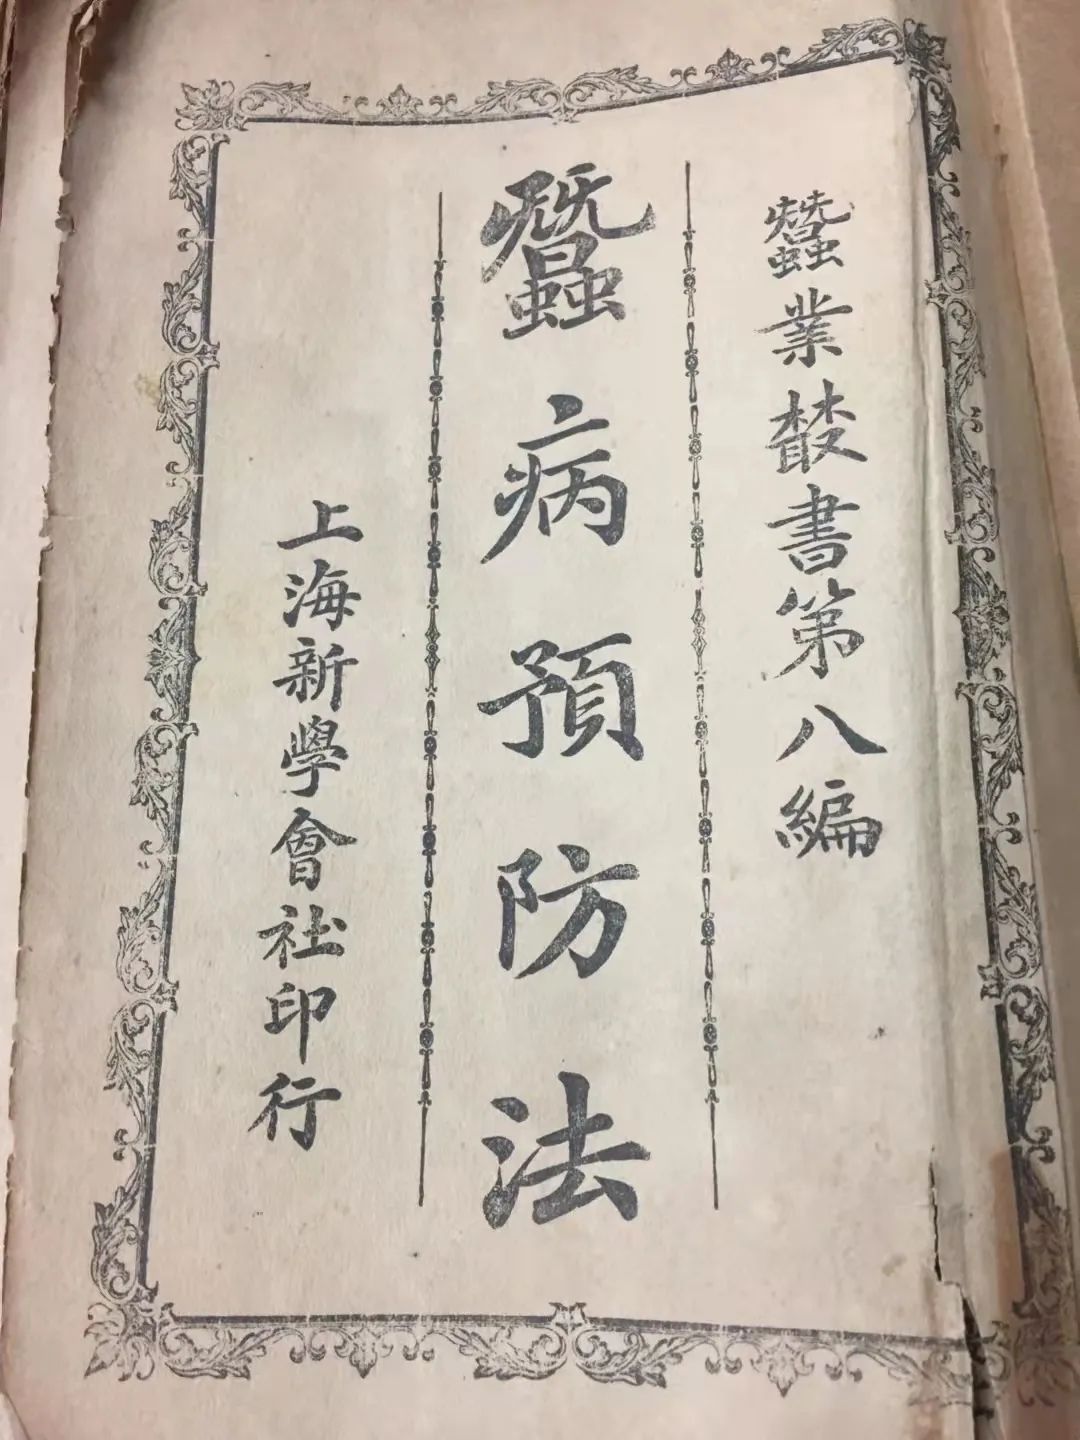 蠶業叢書第八編
蠶病預防法
上海新學會社印行